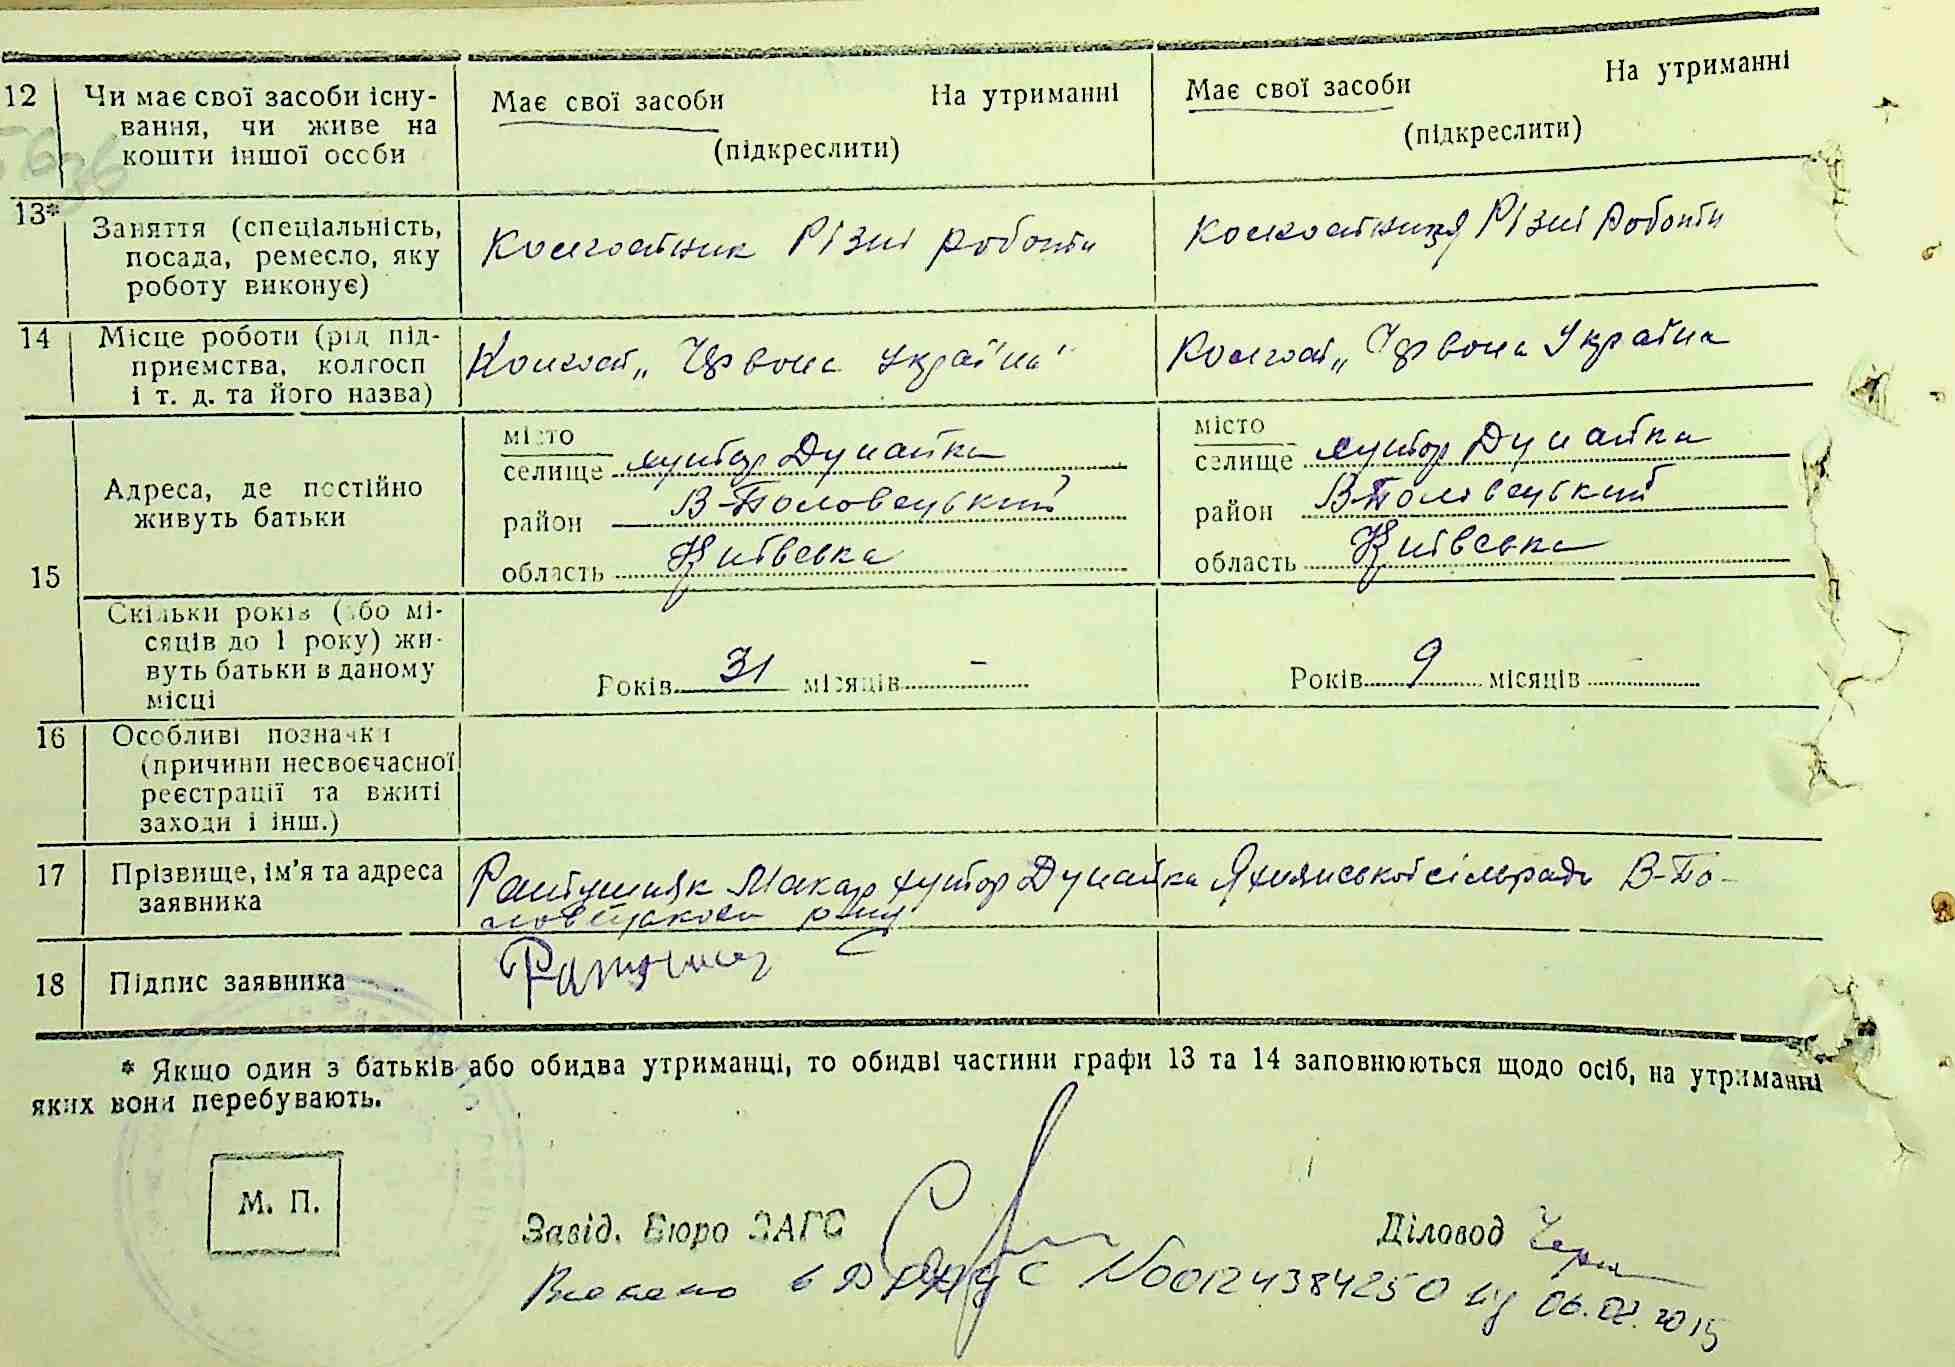 12 Чи має свої засоби існу- Має свої засоби На утриманні Має свої засоби На утриманні
вання, чи живе на (підкреслити) (підкреслити)
кошти іншої особи
13* Заняття (спеціальність, Колгоспник Різні роботи Колгоспниця Різні Роботи
посада, ремесло, яку
роботу виконує)
14 Місце роботи (рід під- Колгосп „Червона Україна" Колгосп „Червона Україна
приємства, колгосп
і т. д. та його назва)
15 Адреса, де постійно
живуть батьки
місто
селище хутор Дунайка
район В-Половецький
область Київська
місто
селище хутор Дунайка
район В-Половецький
область Київська
Скільки років (або мі-
сяців до 1 року) жи-
вуть батьки в даному
місці
Років 31 місяців - Років 9 місяців -
16 Особливі позначки
(причини несвоєчасної
реєстрації та вжиті
заходи і інш.)
17 Прізвище, ім'я та адреса
заявника
Ратушняк Макар хутор Дунайка Яхнянської сільради В-По-
18 Підпис заявника
* Якщо один з батьків або обидва утриманці, то обидві частини графи 13 та 14 заповнюються щодо осіб, на утриманні
яких вони перебувають.
М. П.
Завід. Бюро ЗАГС Діловод
в ДРАЦС №00124384250 від 06.02.2015